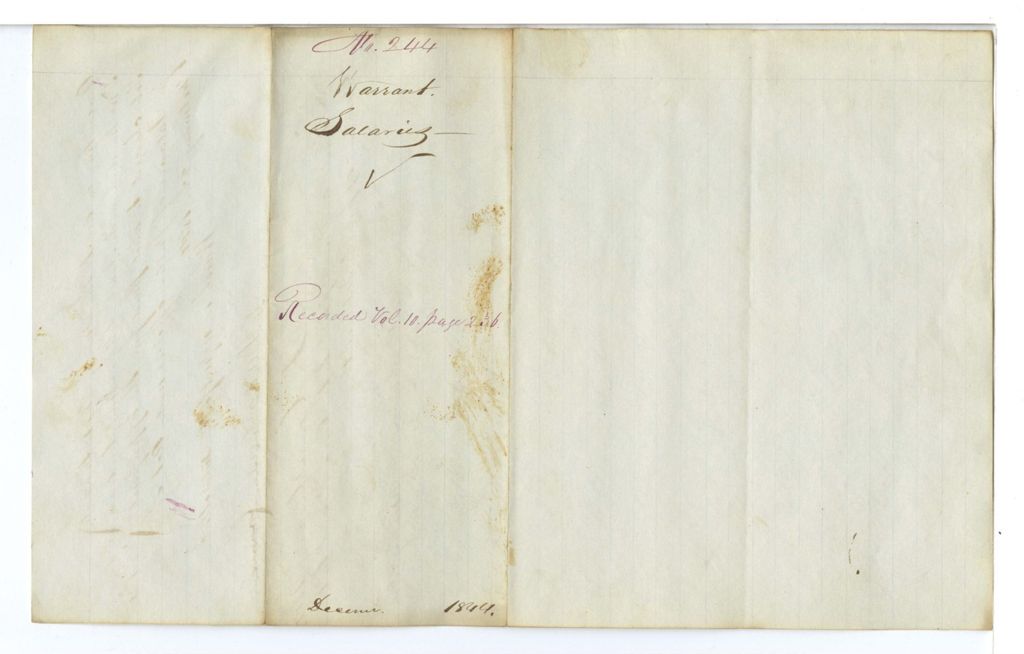 No. 244
Warrant.
Salaries
Recorded Vol. 10. page
Decemr. 1844.